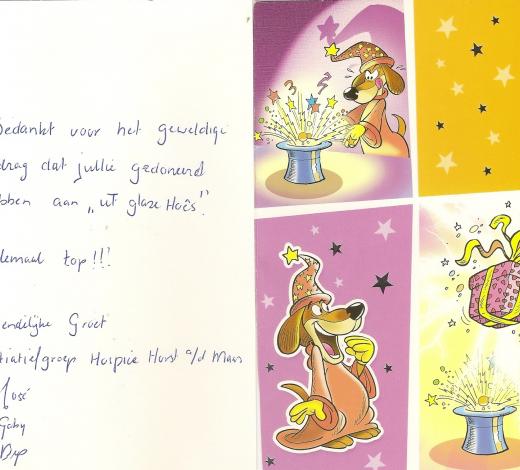 Bedankt voor het geweldige
drag dat jullie gedoneerd
bben aan „ut glaze Hoês".
lemaal top!!!
endelijke Groet
tiatiefgroep Hospice Horst a/d Maas
José
Gaby